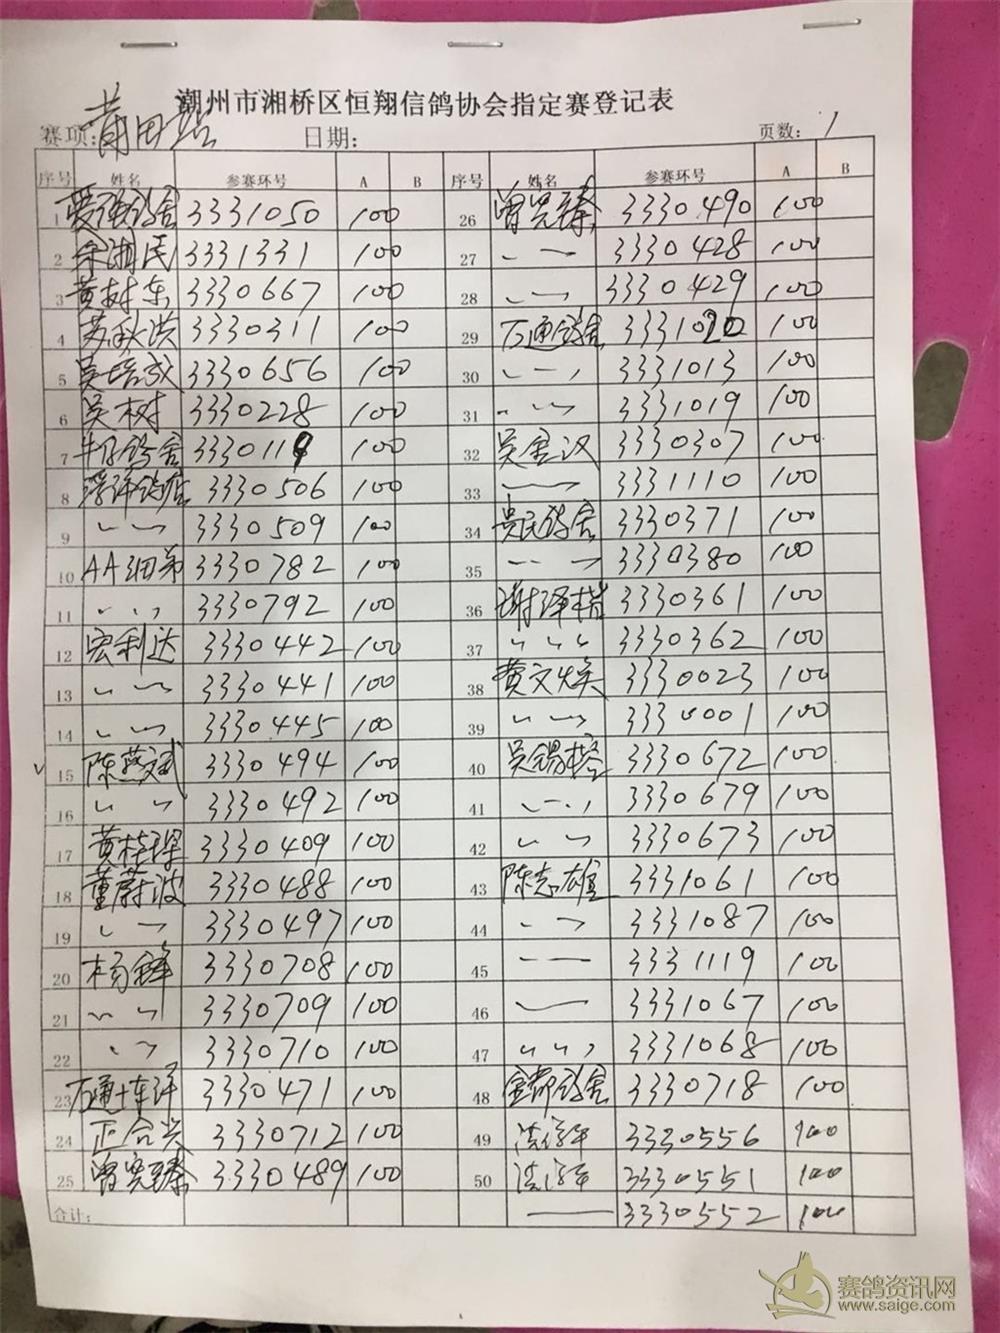 潮州市湘桥区恒翔信鸽协会指定赛登记表
赛项: 莆田站 日期: 页数: 1
序号 姓名 参赛环号 A B 序号 姓名 参赛环号 A B
1 爱强鸽舍 3331050 100 26 曾宪臻 3330490 100
2 余湘民 3331331 100 27 〃 3330428 100
3 黄树东 3330667 100 28 〃 3330429 100
4 苏秋洪 3330311 100 29 万通鸽舍 3331020 100
5 吴培成 3330656 100 30 〃 3331013 100
6 吴树 3330228 100 31 〃 3331019 100
7 牛仔鸽舍 3330119 100 32 吴汉 3330307 100
8 3330506 100 33 3331110 100
9 〃 3330509 100 34 吴氏鸽舍 3330371 100
10 AA细弟 3330782 100 35 〃 3330380 100
11 〃 3330792 100 36 谢泽楷 3330361 100
12 宏利达 3330442 100 37 〃 3330362 100
13 〃 3330441 100 38 黄文焕 3330023 100
14 〃 3330445 100 39 〃 3330001 100
15 陈燕斌 3330494 100 40 吴锡榕 3330672 100
16 〃 3330492 100 41 〃 3330679 100
17 黄桂琛 3330409 100 42 〃 3330673 100
18 董蔚波 3330488 100 43 陈志雄 3331061 100
19 〃 3330497 100 44 〃 3331087 100
20 杨锋 3330708 100 45 〃 3331119 100
21 〃 3330709 100 46 3331067 100
22 〃 3330710 100 47 〃 3331068 100
23 万通士车洋 3330471 100 48 金都鸽舍 3330718 100
24 正合兴 3330712 100 49 3330556 100
25 曾宪臻 3330489 100 50 3330551 100
合计: 3330552 100
赛鸽资讯网
www.saige.com